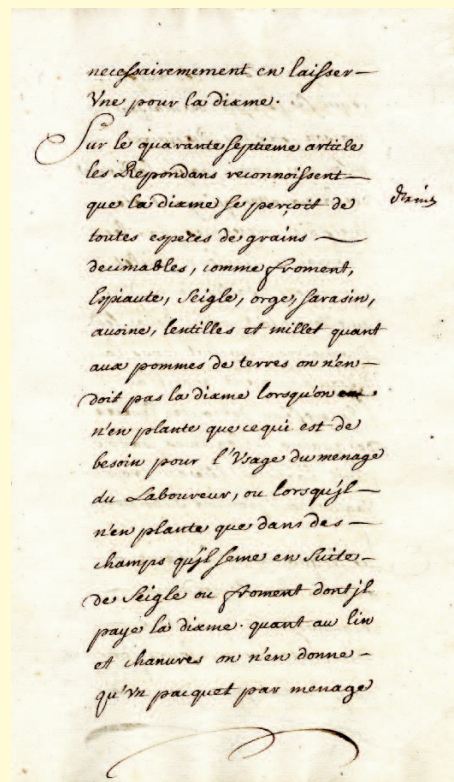 necessairemement en laisser
Vne pour la dixme.
Sur le quarante septieme article
les Repondans reconnoissent
que la dixme se perçoit de
dixmes
toutes especes de grains
decimables, comme froment,
Espiaute, Seigle, orge, sarasin,
avoine, lentilles et millet quant
aux pommes de terres on n'en
doit pas la dixme lorsqu'on
n'en plante que ce qui est de
besoin pour l'Vsage du menage
du Laboureur, ou lorsqu'jl
n'en plante que dans des
champs qu'jl seme en suite
de Seigle ou froment dont jl
paye la dixme. quant au lin
et chanvres on n'en donne
qu'Vn pacquet par menage